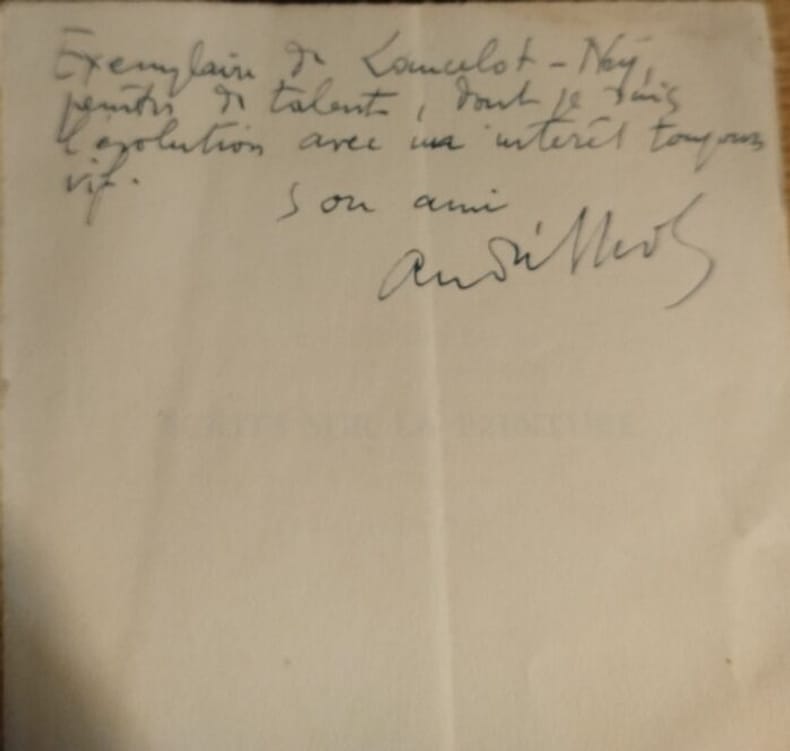 Exemplaire de Lancelot-Ney,
peintre de talent, dont je suis
l'évolution avec un intérêt toujours
vif.
Son ami
André Lhote
ECRITS SUR LA PEINTURE